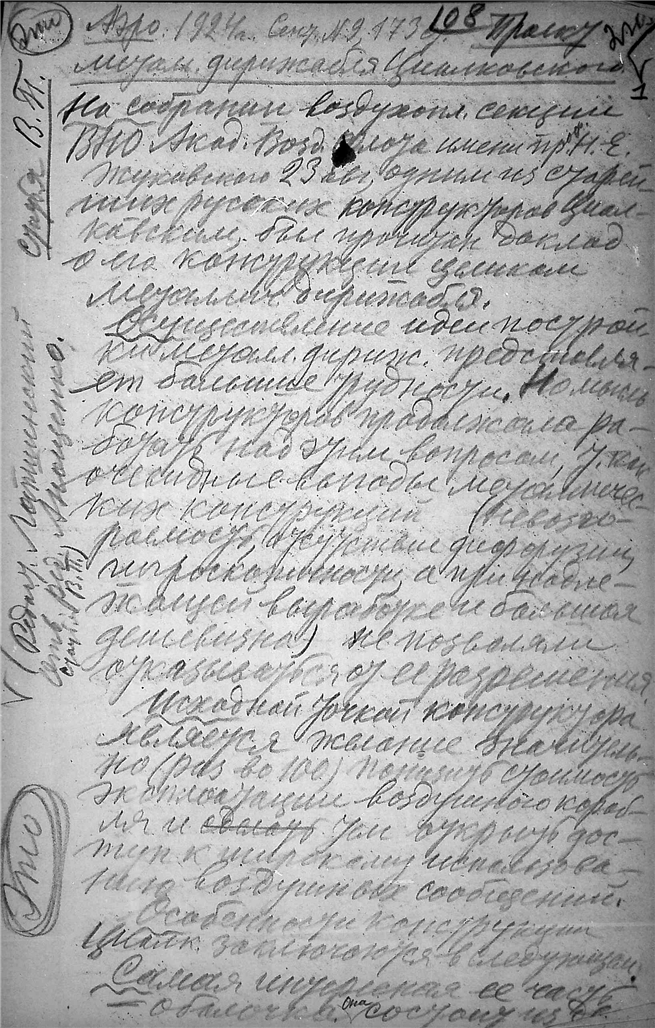 Это
Аэро. 1924г. Сент. №9, 173 с. 108 Проект
метал. дирижабля Циалковского
1
На собрании воздухопл. секции
ВНО Акад. Возд. Флота имени пр. Н.Е.
Жуковского 23 авг. одним из старей-
ших русских конструкторов Циал-
ковским, был прочитан доклад
о его конструкции целиком
металлич. дирижабля.
Осуществление идеи построй-
ки металл. дириж. представля-
ет большие трудности. Но мысль
конструкторов продолжала ра-
ботать над этим вопросом, т. как
очевидные выгоды металличес-
ких конструкций (невозго-
раемость, отсутствие диффузии,
гигроскопичности, а при надле-
жащей выработке и большая
дешевизна) не позволяли
отказываться от ее разрешения
Исходной точкой конструктора
является желание значитель-
но (раз во 100) понизить стоимость
эксплоатации воздушного кораб-
ля и сделать тем открыть дос-
туп к широкому использова-
нию воздушных сообщений.
Особенности конструкции
Циалк. заключаются в следующем.
Самая интересная ее часть
– оболочка. Она состоит из
статья В. П.
(Редакт. Лапчинский
отв. ред. Анощенко.
статья В. П.)
Это